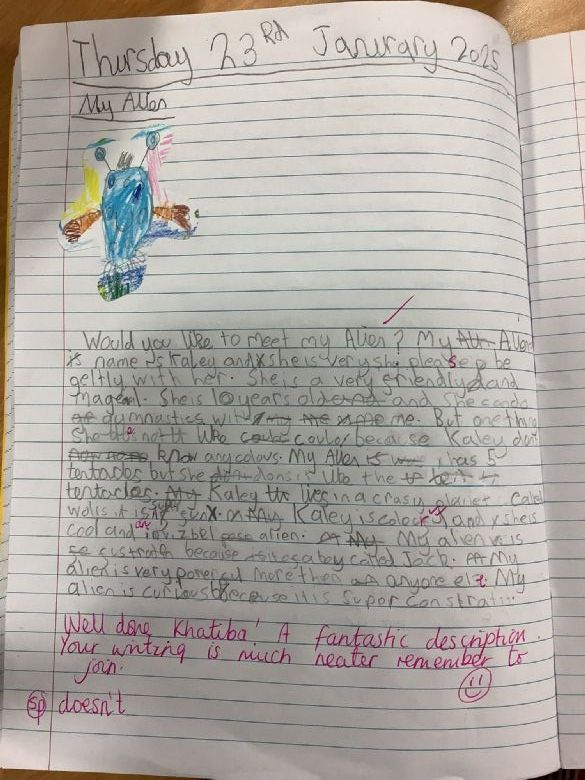 Thursday 23RD Janurary 2025
My Alien
Would you like to meet my Alien? My Alien
is name is Kaley and she is very shy please be
geltly with her. She is a very friendly and
magenl. She is 10 years old and she can do
gymnastics with me. But one thing
She not like coulor because Kaley don't
know any colous. My Alien has 5
tentacles but she dons is like the
tentacles. Kaley lives in a crasy planet. Called
wolis it is super fun. Kaley is colourus and she is
cool and an inv.zbel alien. My alien is
custrath because a boy called Jack. My
alien is very powerful more then anyone els. My
alien is curious because it is Super Constrati
Well done Khatiba! A fantastic description.
Your writing is much neater remember to
join.
sp doesn't